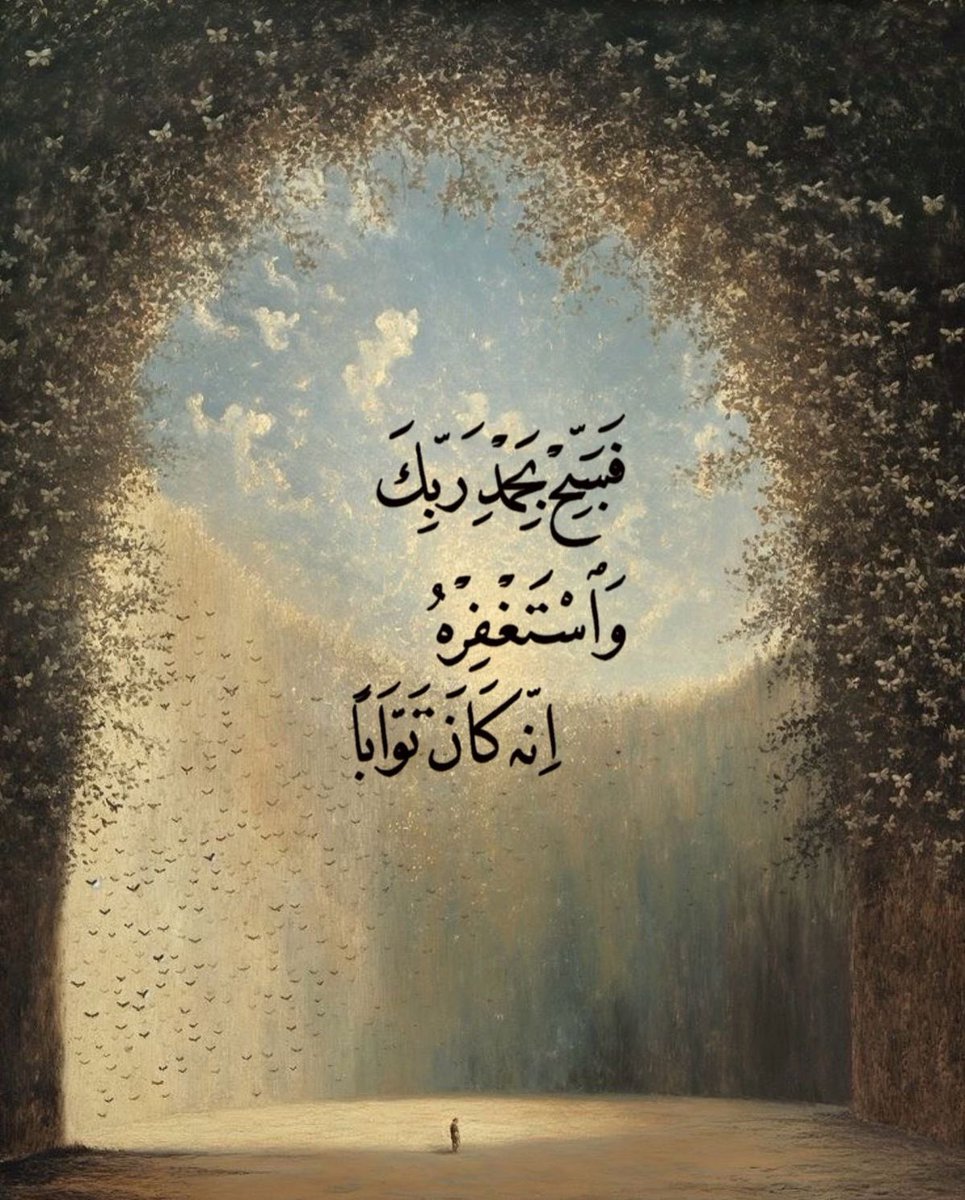 فَسَبِّحْ بِحَمْدِ رَبِّكَ
وَٱسْتَغْفِرْهُ
اِنَّه كَانَ تَوَّابَاً